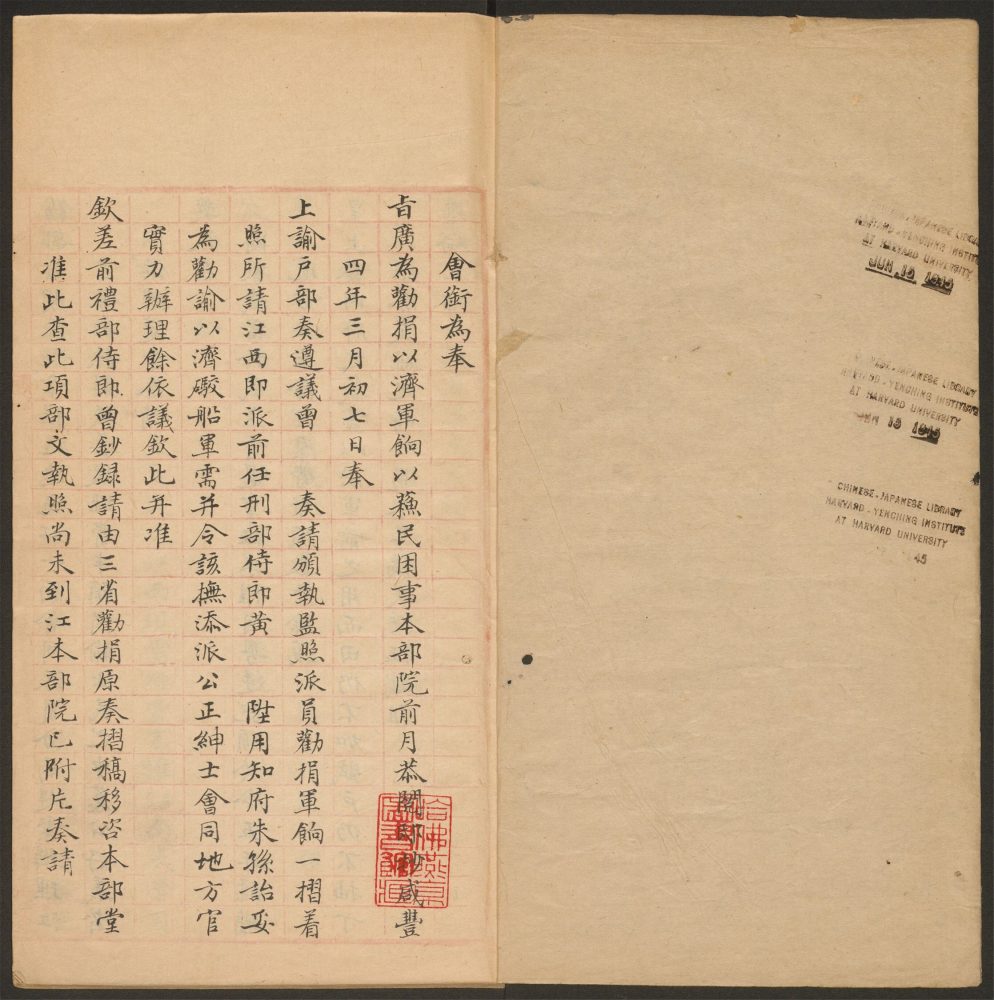 會銜為奉
旨廣為勸捐以濟軍餉以蘇民困事本部院前月恭閱邸抄咸豐
四年三月初七日奉
上諭户部奏遵議曾　奏請頒執監照派員勸捐軍餉一摺着
照所請江西即派前任刑部侍郎黃　陞用知府朱孫詒妥
為勸諭以濟礮船軍需并令該撫添派公正紳士會同地方官
實力辦理餘依議欽此并准
欽差前禮部侍郎曾鈔録請由三省勸捐原奏摺稿移咨本部堂
准此查此項部文執照尚未到江本部院已附片奏請
哈佛燕京
圖書館藏
CHINESE-JAPANESE LIBRARY
HARVARD-YENCHING INSTITUTE
AT HARVARD UNIVERSITY
JUN 15 1945
CHINESE-JAPANESE LIBRARY
HARVARD-YENCHING INSTITUTE
AT HARVARD UNIVERSITY
JUN 15 1945
CHINESE-JAPANESE LIBRARY
HARVARD-YENCHING INSTITUTE
AT HARVARD UNIVERSITY
45